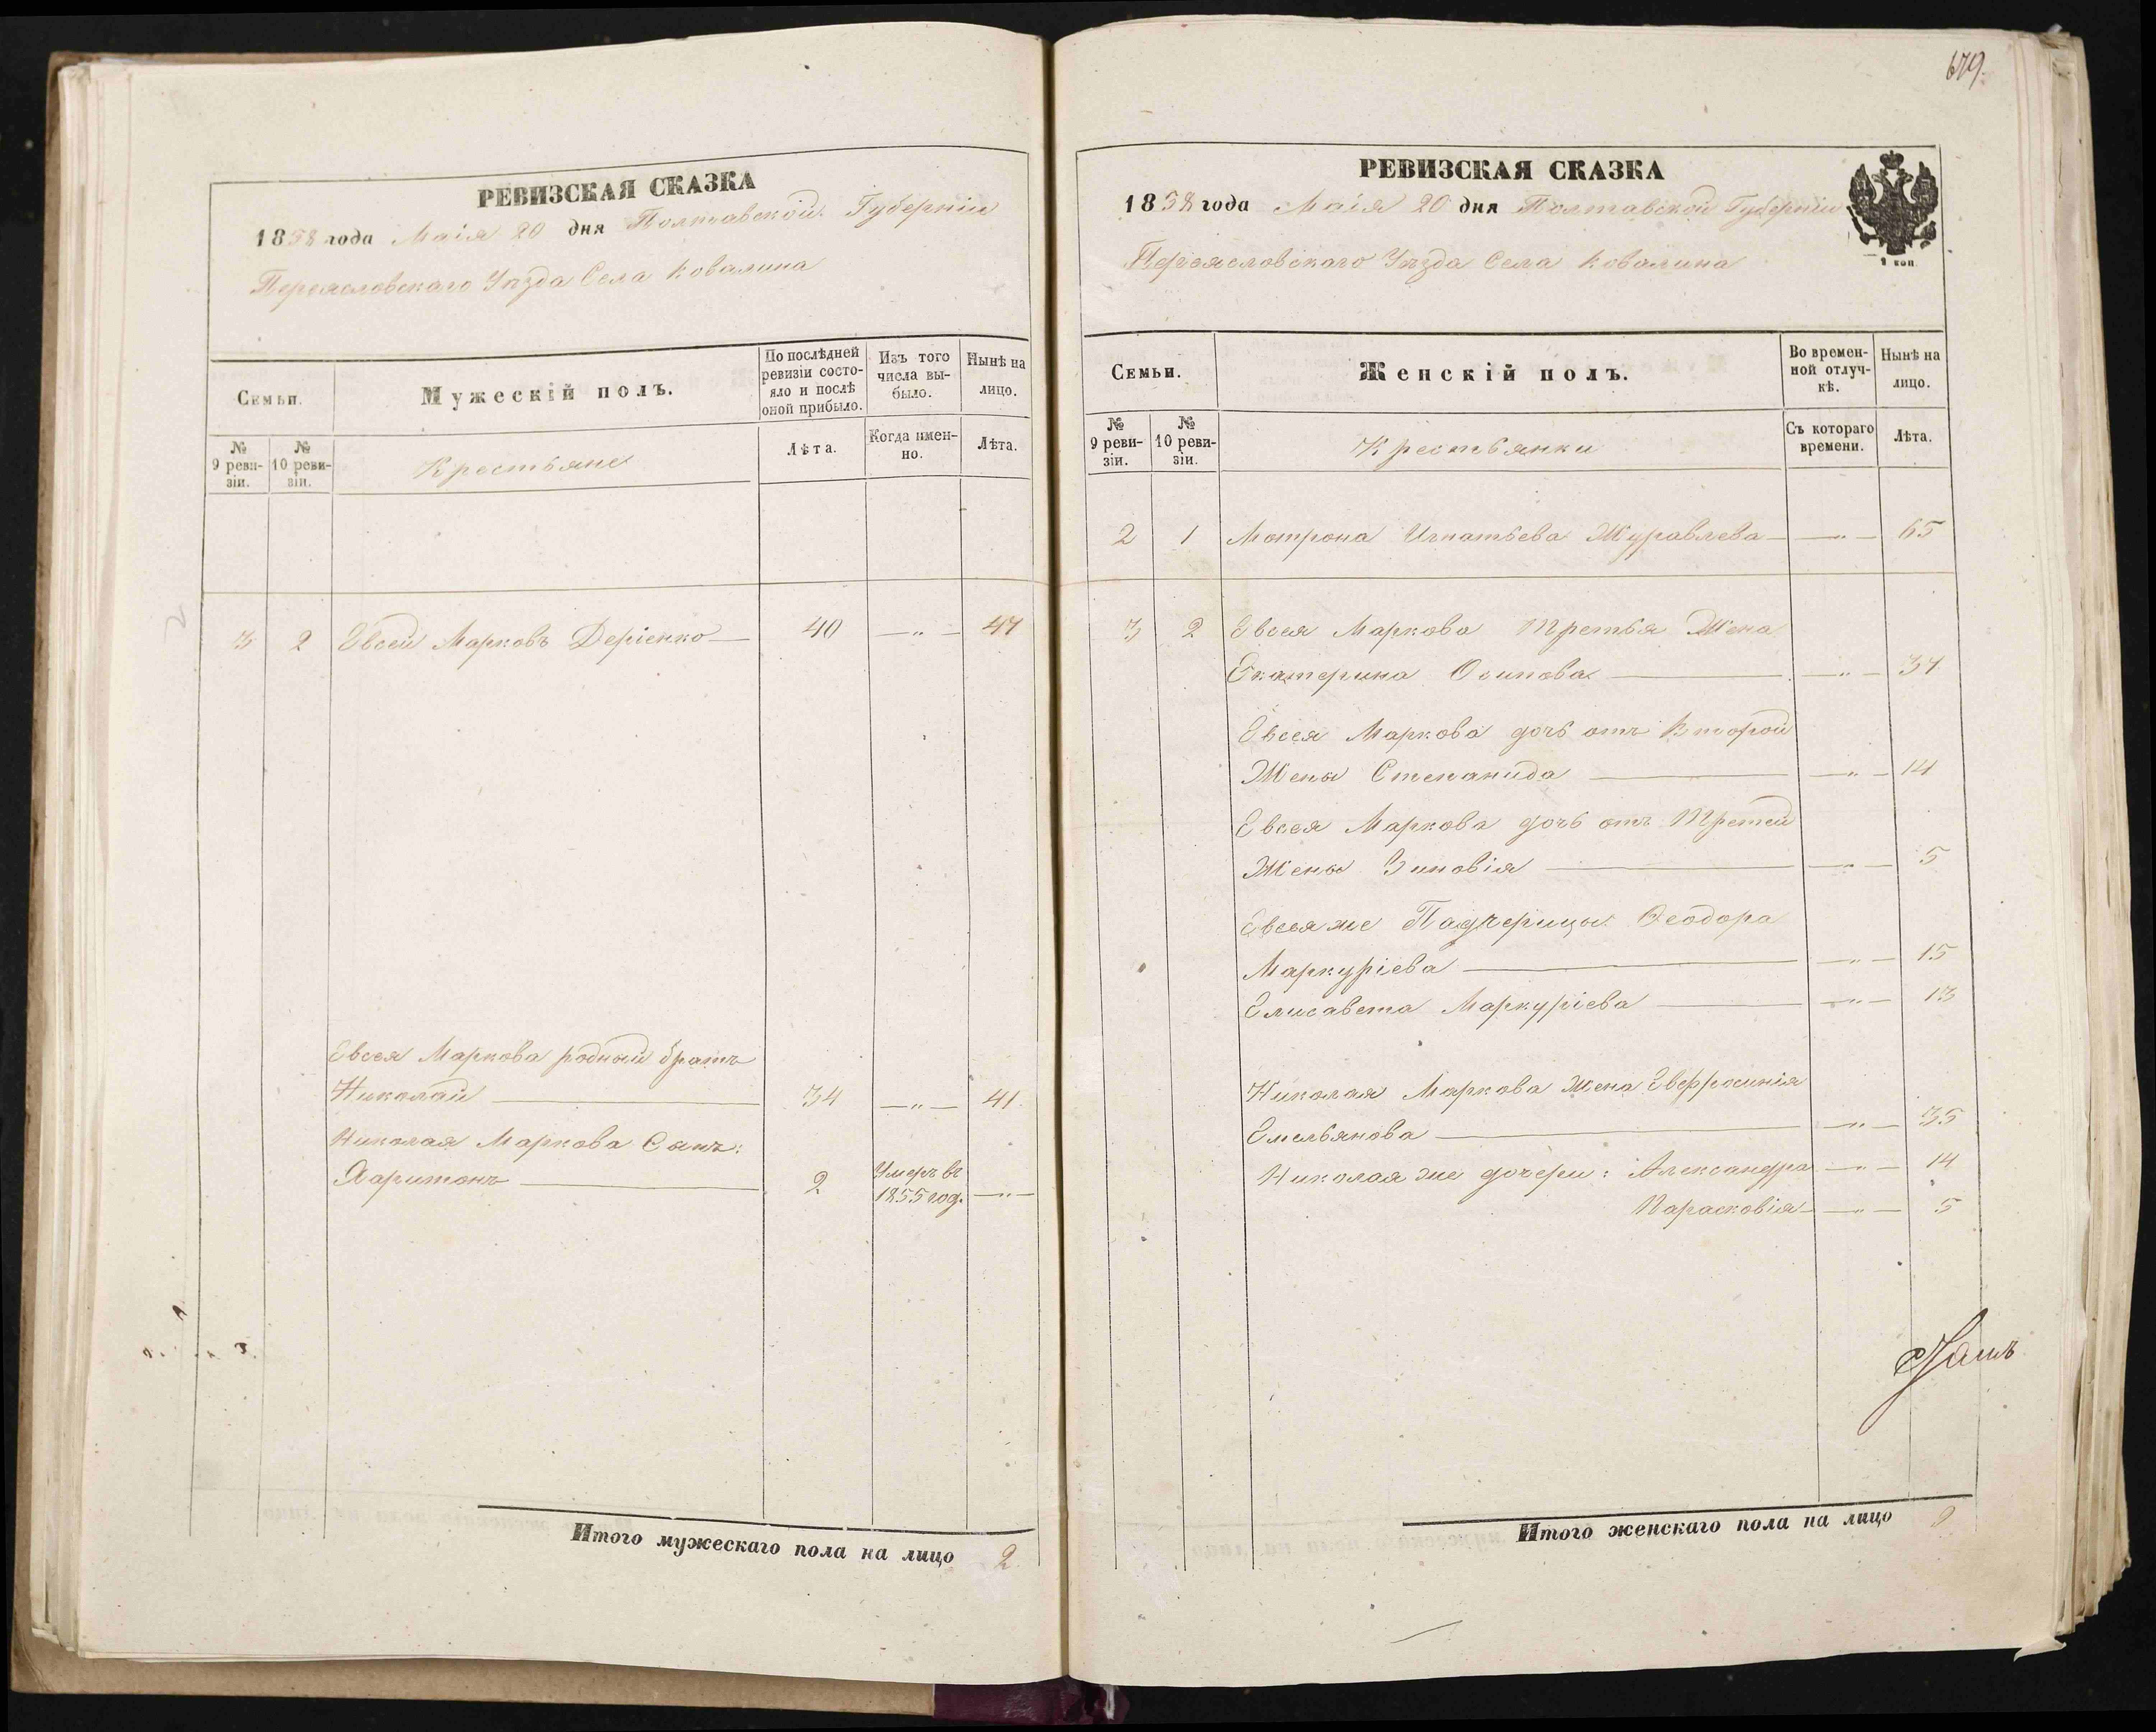 679.
РЕВИЗСКАЯ СКАЗКА
1858 года Маія 20 дня Полтавской Губерніи
Переясловскаго Уѣзда Села Ковалина
Семьи.
Мужескій полъ.
По послѣдней ревизіи состояло и послѣ оной прибыло.
Изъ того числа выбыло.
Нынѣ на лицо.
№ 9 ревизіи.
№ 10 ревизіи.
Крестьяне
Лѣта.
Когда именно.
Лѣта.
3 2 Евсей Марковъ Деріенко — 40 — " — 47
Евсея Маркова родный братъ
Николай — 34 — " — 41.
Николая Маркова Сынъ:
Харитонъ — 2 Умеръ въ 1855 год. — " —
Итого мужескаго пола на лицо 2.
РЕВИЗСКАЯ СКАЗКА
1858 года Маія 20 дня Полтавской Губерніи
1 коп.
Переясловскаго Уѣзда Села Ковалина
Семьи.
Женскій полъ.
Во временной отлучкѣ.
Нынѣ на лицо.
№ 9 ревизіи.
№ 10 ревизіи.
Крестьянки
Съ котораго времени.
Лѣта.
2 1 Мотрона Игнатьева Журавлева — — " — 65
3 2 Евсея Маркова Третья Жена
Екатерина Осипова — — " — 37
Евсея Маркова дочь отъ Второй
Жены Степанида — — " — 14
Евсея Маркова дочь отъ Третей
Жены Зиновія — — " — 5
Евсея же Падчерицы Ѳеодора
Маркуріева — — " — 15
Елисавета Маркуріева — — " — 13
Николая Маркова Жена Евфросинія
Емельянова — — " — 35
Николая же дочери: Александра — " — 14
Парасковія — — " — 5
Итого женскаго пола на лицо 9